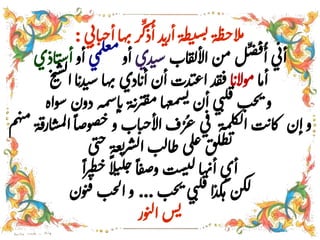 ملاحظة بسيطة أريد أُذكِّر بها أحبابي :
أني أُفضِّل من الألقاب سيدي أو معلمي أو أستاذي
أما مولانا فقد اعتدت أن أنادي بها سيدنا الشيخ
و يحب قلبي أن يسمعها مقترنة بإسمه دون سواه
و إن كانت الكلمة في عرف الأحباب و خصوصاً المشارقة منهم
تطلق على طالب الشريعة حتى
أي أنها ليست وصفاً جليلاً خطراً
لكن هكذا قلبي يحب ... و الحب فنون
يس النور